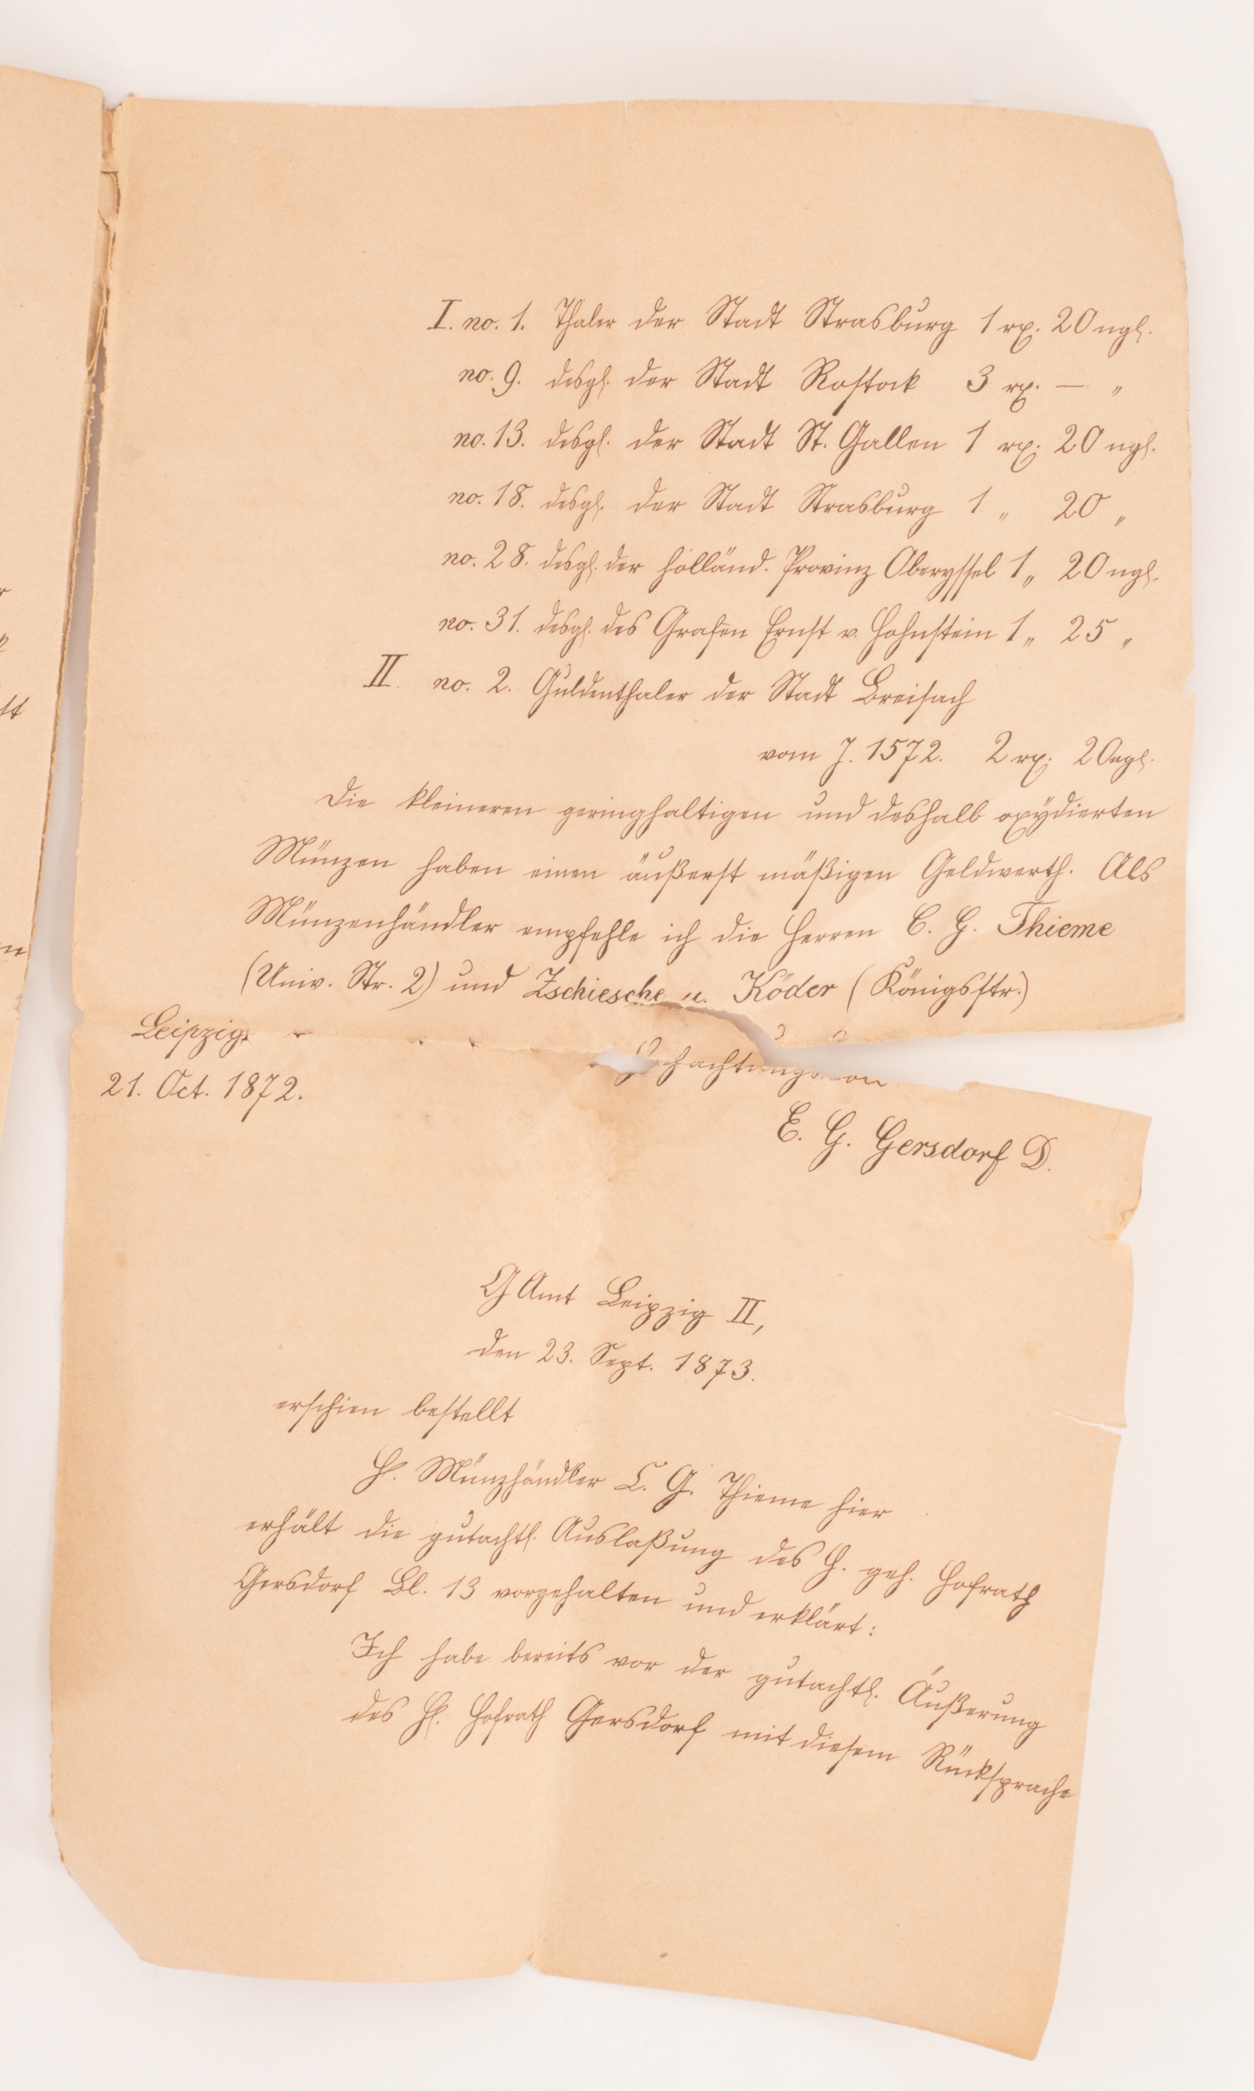 I. no. 1. Thaler der Stadt Strasburg 1 rx. 20 ngl.
no. 9. desgl. der Stadt Rostock 3 rx. — "
no. 13. desgl. der Stadt St. Gallen 1 rx. 20 ngl.
no. 18. desgl. der Stadt Strasburg 1 " 20 "
no. 28. desgl. der holländ. Provinz Oberyssel 1 " 20 ngl.
no. 31. desgl. des Grafen Ernst v. Hohnstein 1 " 25 "
II no. 2. Guldenthaler der Stadt Breisach
vom J. 1572. 2 rx. 20 ngl.
Die kleineren geringhaltigen und deshalb oxydierten
Münzen haben einen äußerst mäßigen Geldwerth. Als
Münzenhändler empfehle ich die Herren C. G. Thieme
(Univ. Str. 2) und Zschiesche u. Köder (Königsstr.)
Leipzig,
Hochachtungsvoll
21. Oct. 1872.
E. G. Gersdorf D.
GAmt Leipzig II,
den 23. Sept. 1873.
erschien bestellt
H. Münzhändler C. G. Thieme hier
erhält die gutachtl. Auslaßung des H. geh. Hofrath
Gersdorf Bl. 13 vorgehalten und erklärt:
Ich habe bereits vor der gutachtl. Äußerung
des H. Hofrath Gersdorf mit diesem Rücksprache